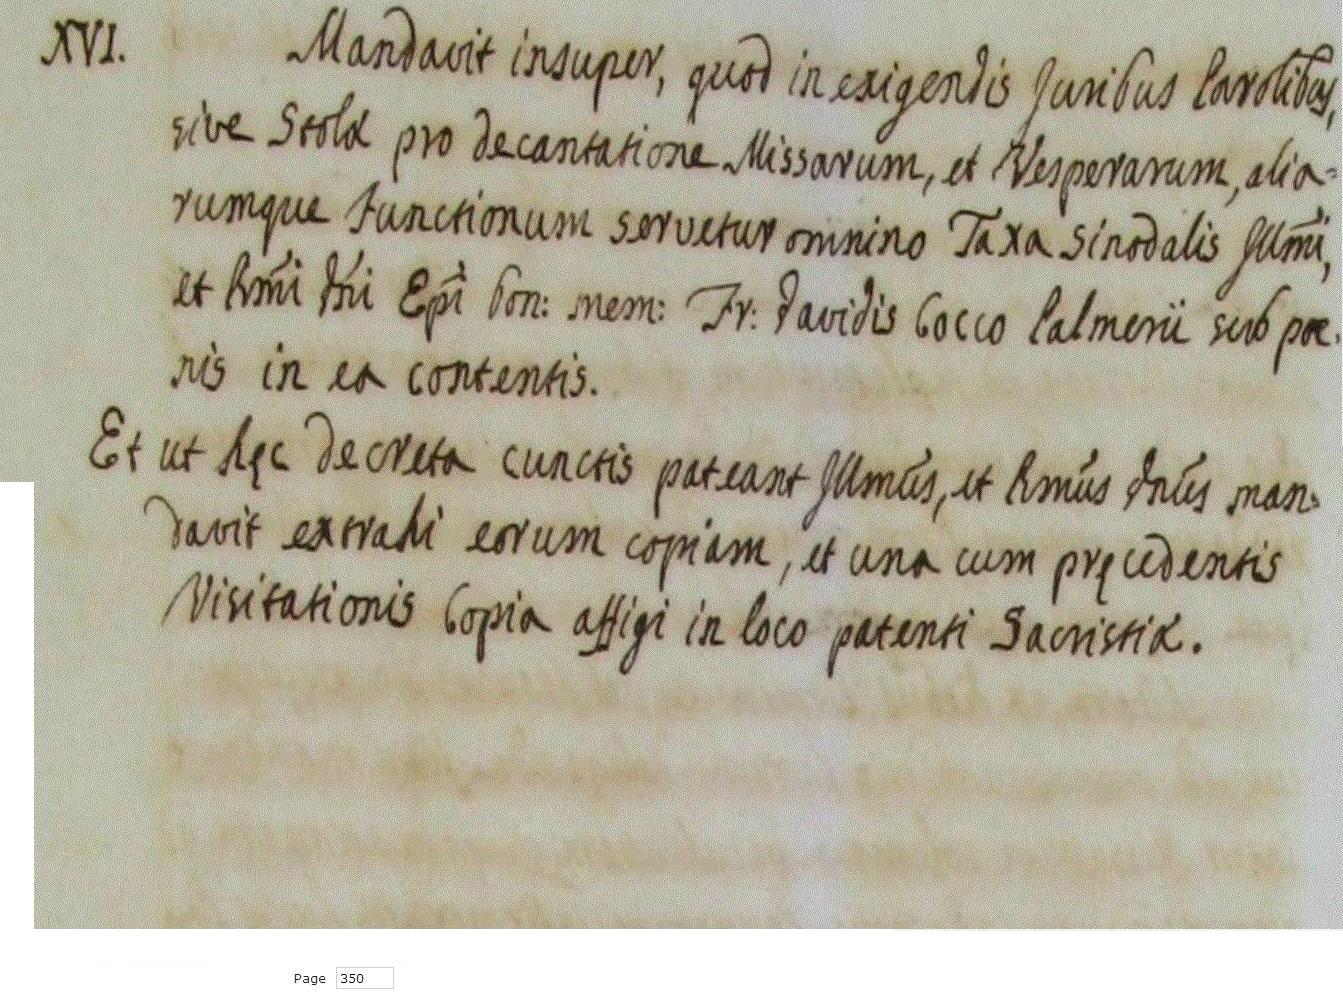 XVI. Mandavit insuper, quod in exigendis Juribus Parochibus,
sive Stolæ pro decantatione Missarum, et Vesperarum, alia=
rumque Functionum servetur omnino Taxa Sinodalis Illmi,
et Rmi Dni Epi bon: mem: Fr: Davidis Cocco Palmerii sub poe=
nis in ea contentis.
Et ut hęc decreta cunctis pateant Illmus, et Rmus Dnus man=
davit extrahi eorum copiam, et una cum pręcedentis
Visitationis Copia affigi in loco patenti Sacristiæ.
Page 350